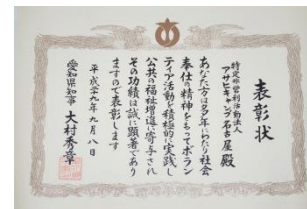 表彰状
特定非営利活動法人
アサヒキャプネ名古屋殿
あなた方は多年にわたり社会
奉仕の精神をもってボラン
ティア活動を積極的に実践し
公共の福祉増進に寄与され
その功績は誠に顕著であり
ますので表彰します
平成二十九年九月八日
愛知県知事 大村秀章